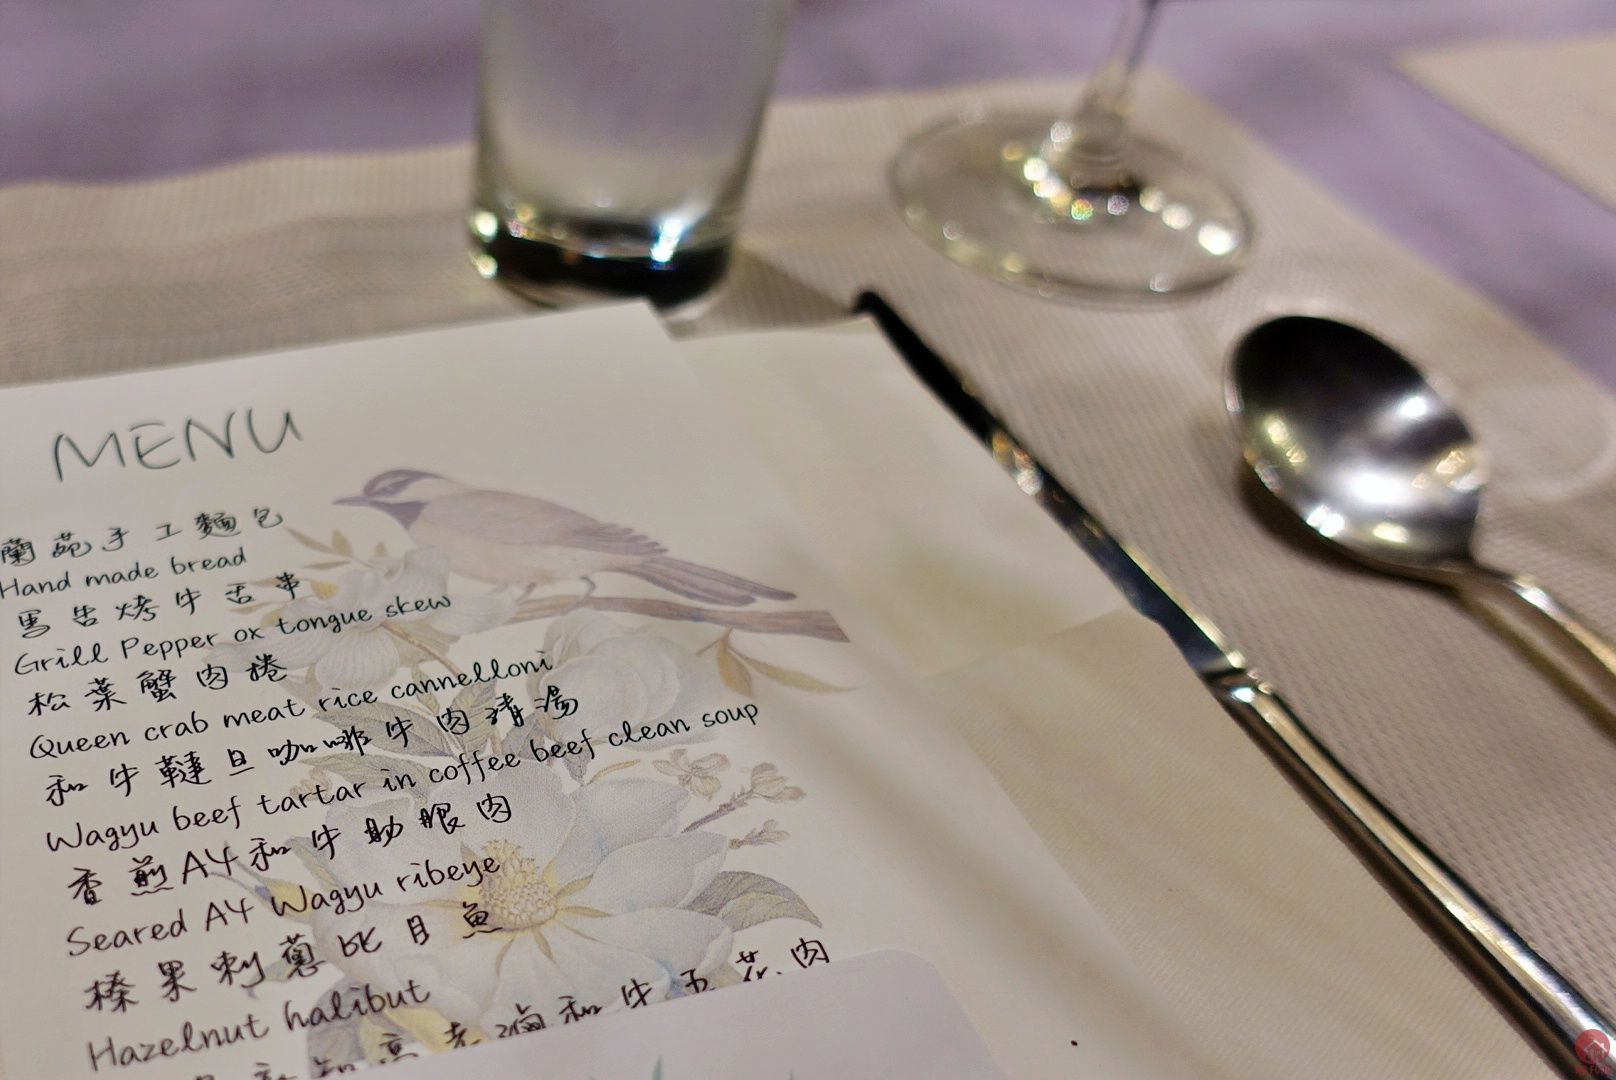 MENU
蘭苑手工麵包
Hand made bread
馬告烤牛舌串
Grill Pepper ox tongue skew
松葉蟹肉捲
Queen crab meat rice cannelloni
和牛韃旦咖啡牛肉清湯
Wagyu beef tartar in coffee beef clean soup
香煎A4和牛肋眼肉
Seared A4 Wagyu ribeye
榛果刺蔥比目魚
Hazelnut halibut
滷和牛五花肉